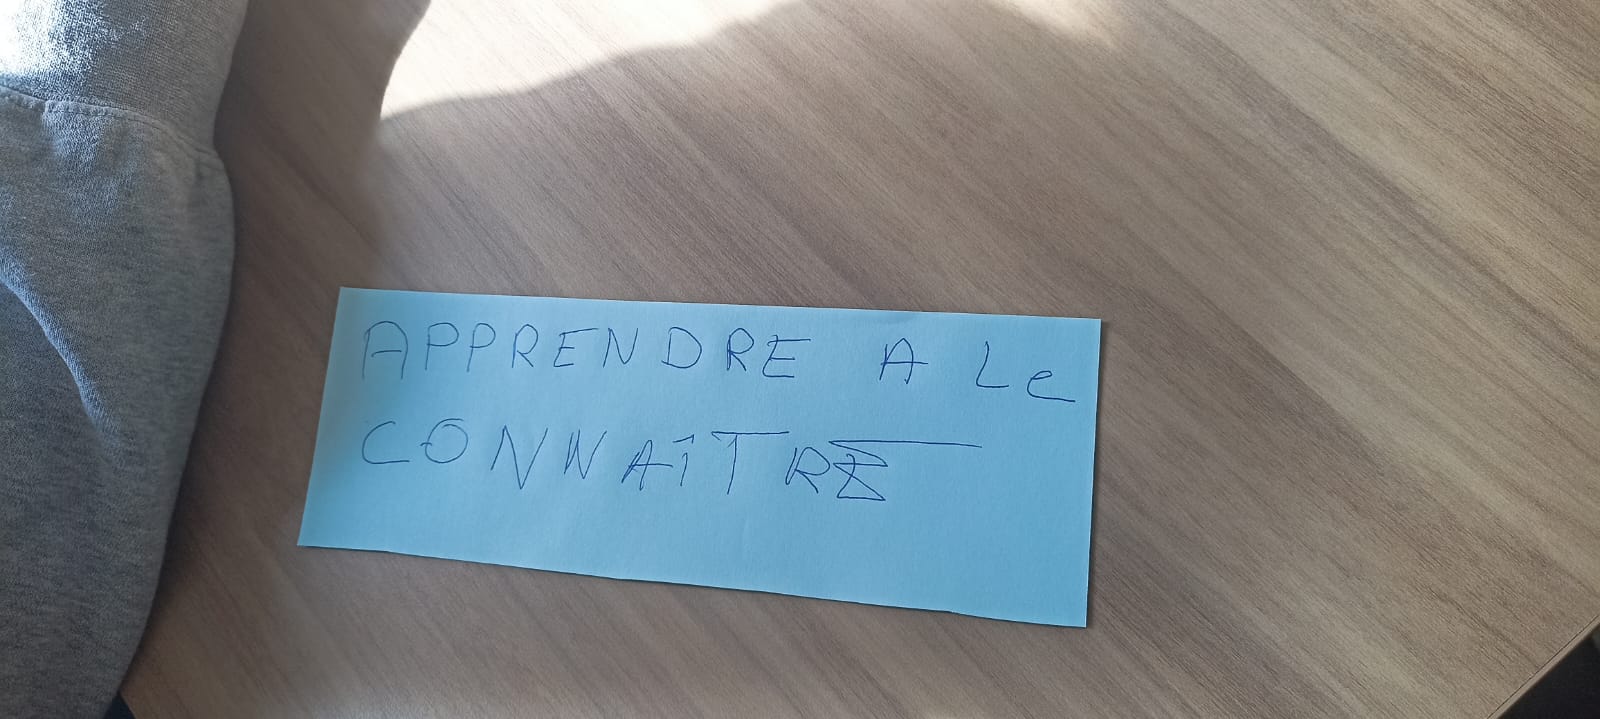 APPRENDRE A Le
CONNAÎTRE